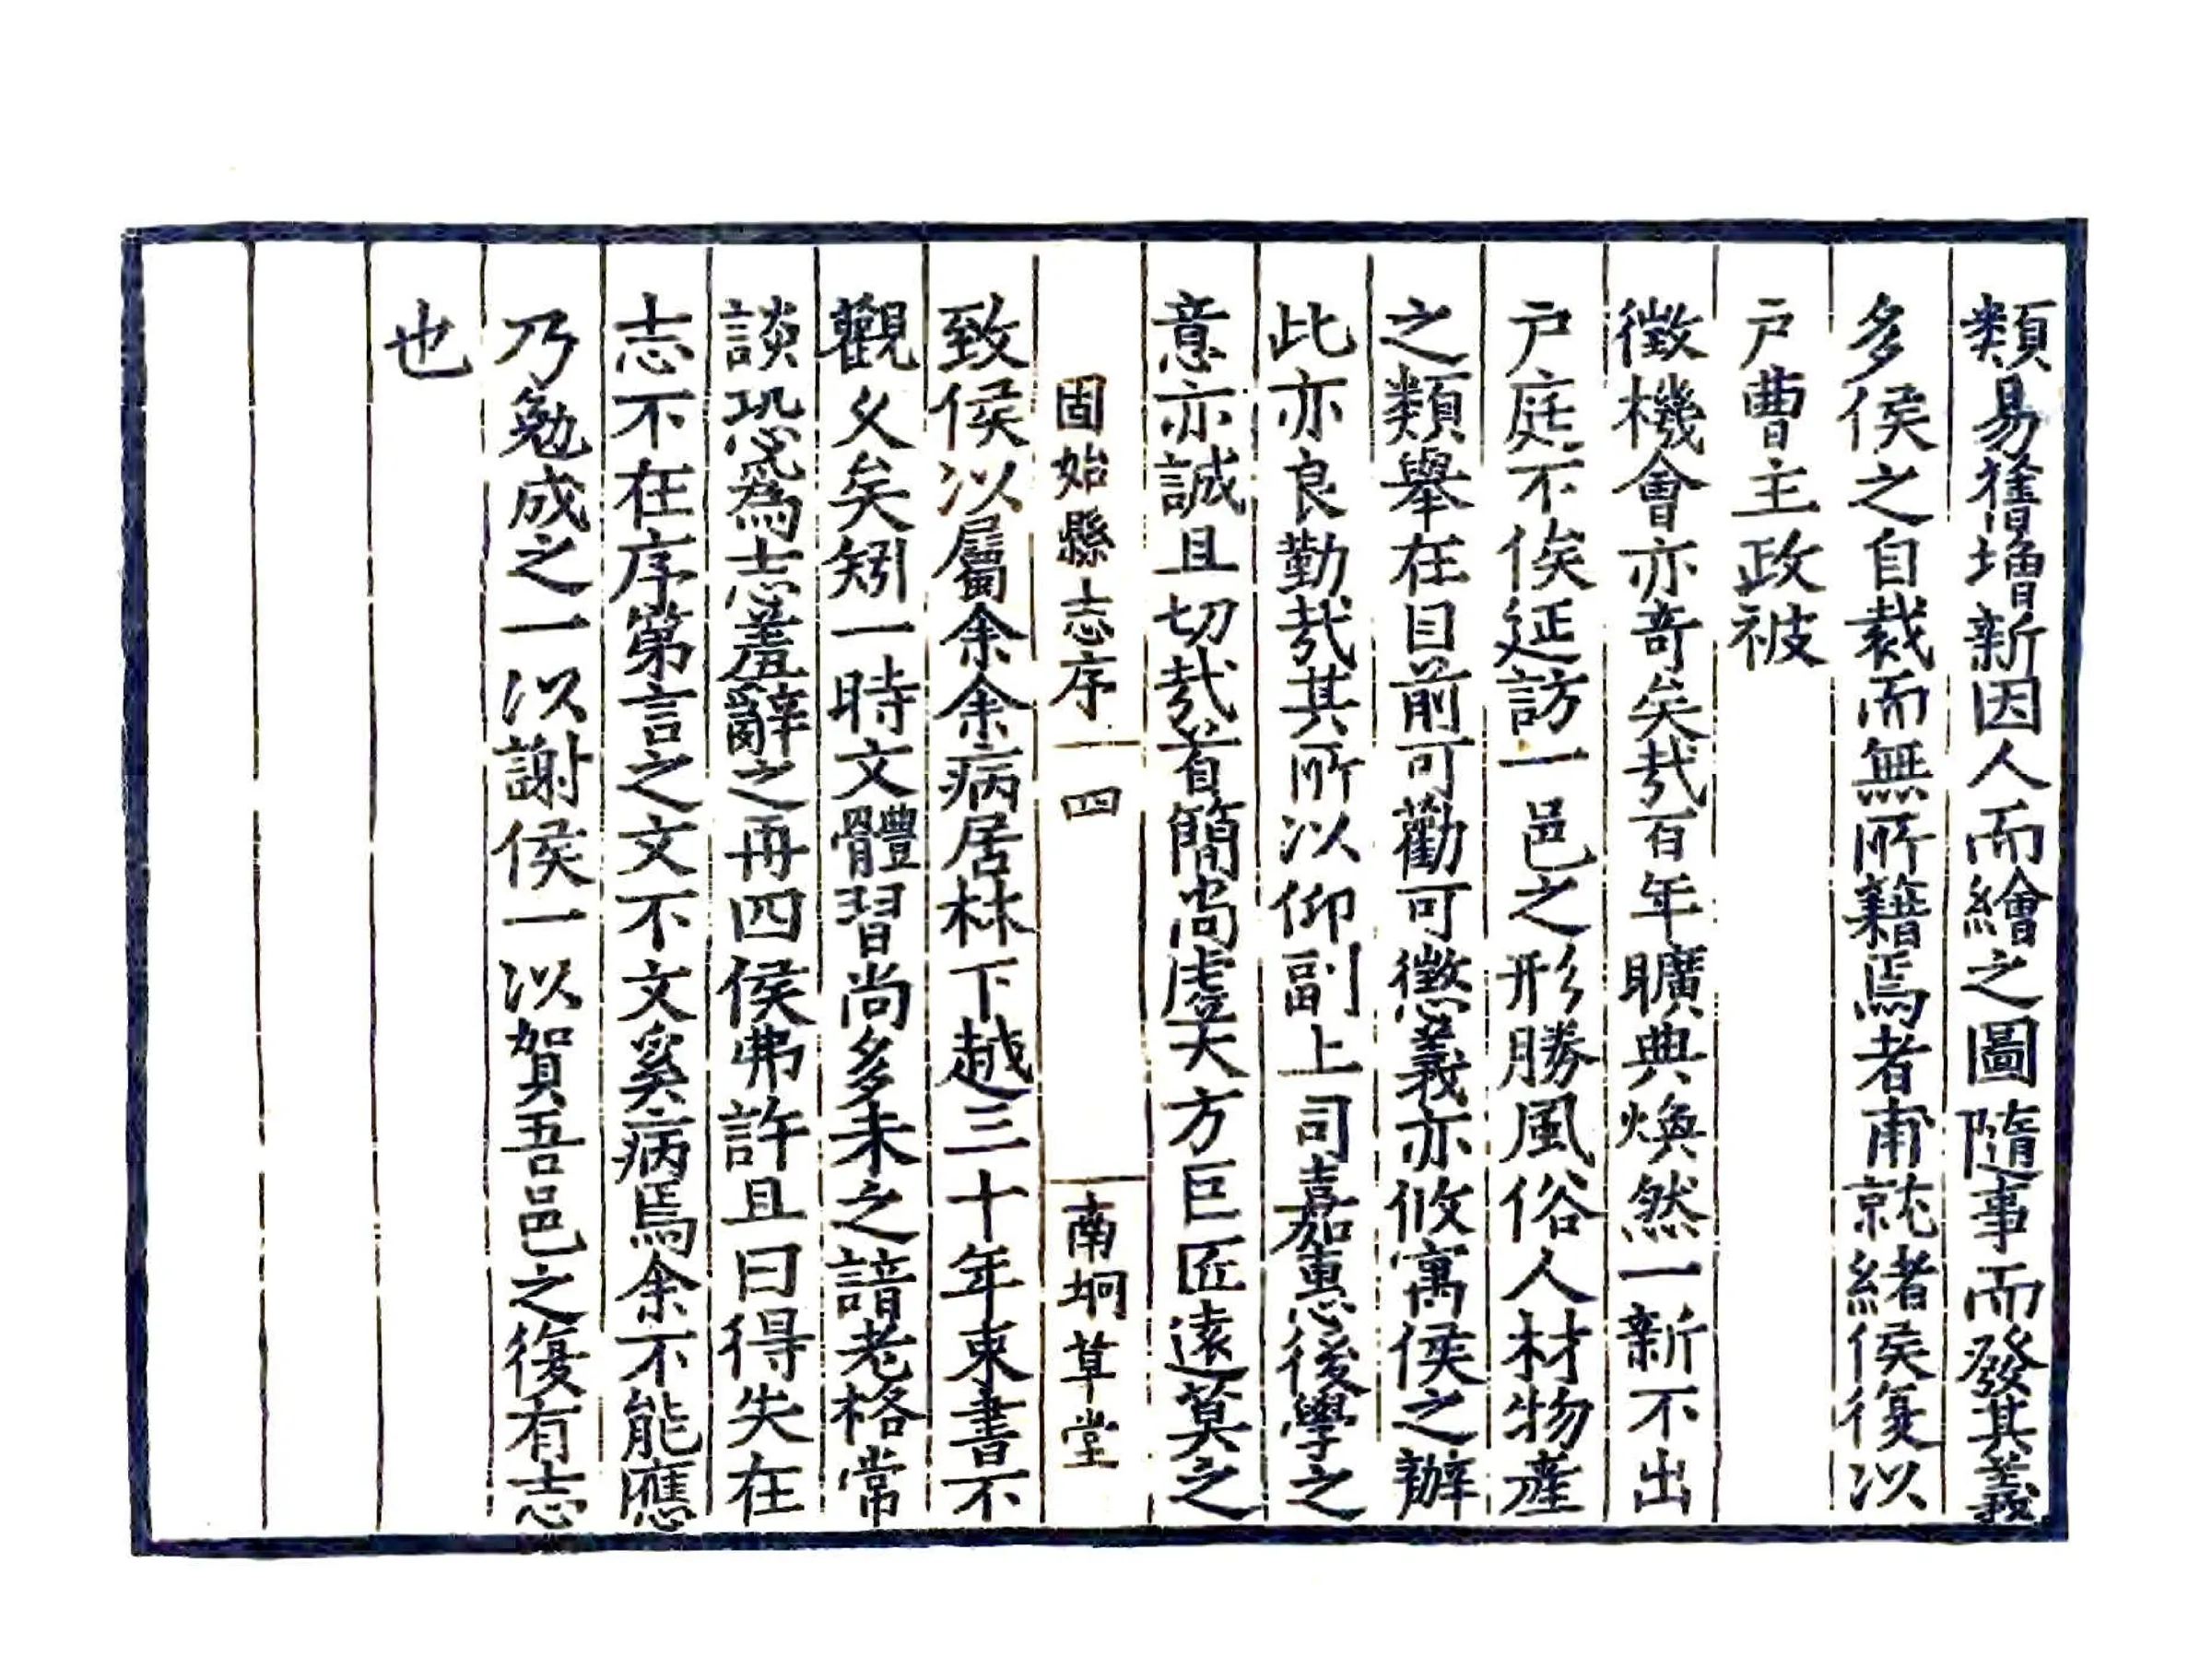 類易舊增新因人而繪之圖隨事而發其義
多侯之自裁而無所藉焉者甫就緒侯復以
戶曹主政被
徵機會亦奇矣哉百年曠典煥然一新不出
戶庭不俟延訪一邑之形勝風俗人材物產
之類舉在目前可勸可懲義亦攸寓侯之辦
此亦良勤哉其所以仰副上司嘉惠後學之
意亦誠且切哉首簡尚虛大方巨匠遠莫之
固始縣志序 四 南坰草堂
致侯以屬余余病居林下越三十年束書不
觀久矣矧一時文體習尚多未之諳老格常
談恐為志羞辭之再四侯弗許且曰得失在
志不在序第言之文不文奚病焉余不能應
乃勉成之一以謝侯一以賀吾邑之復有志
也